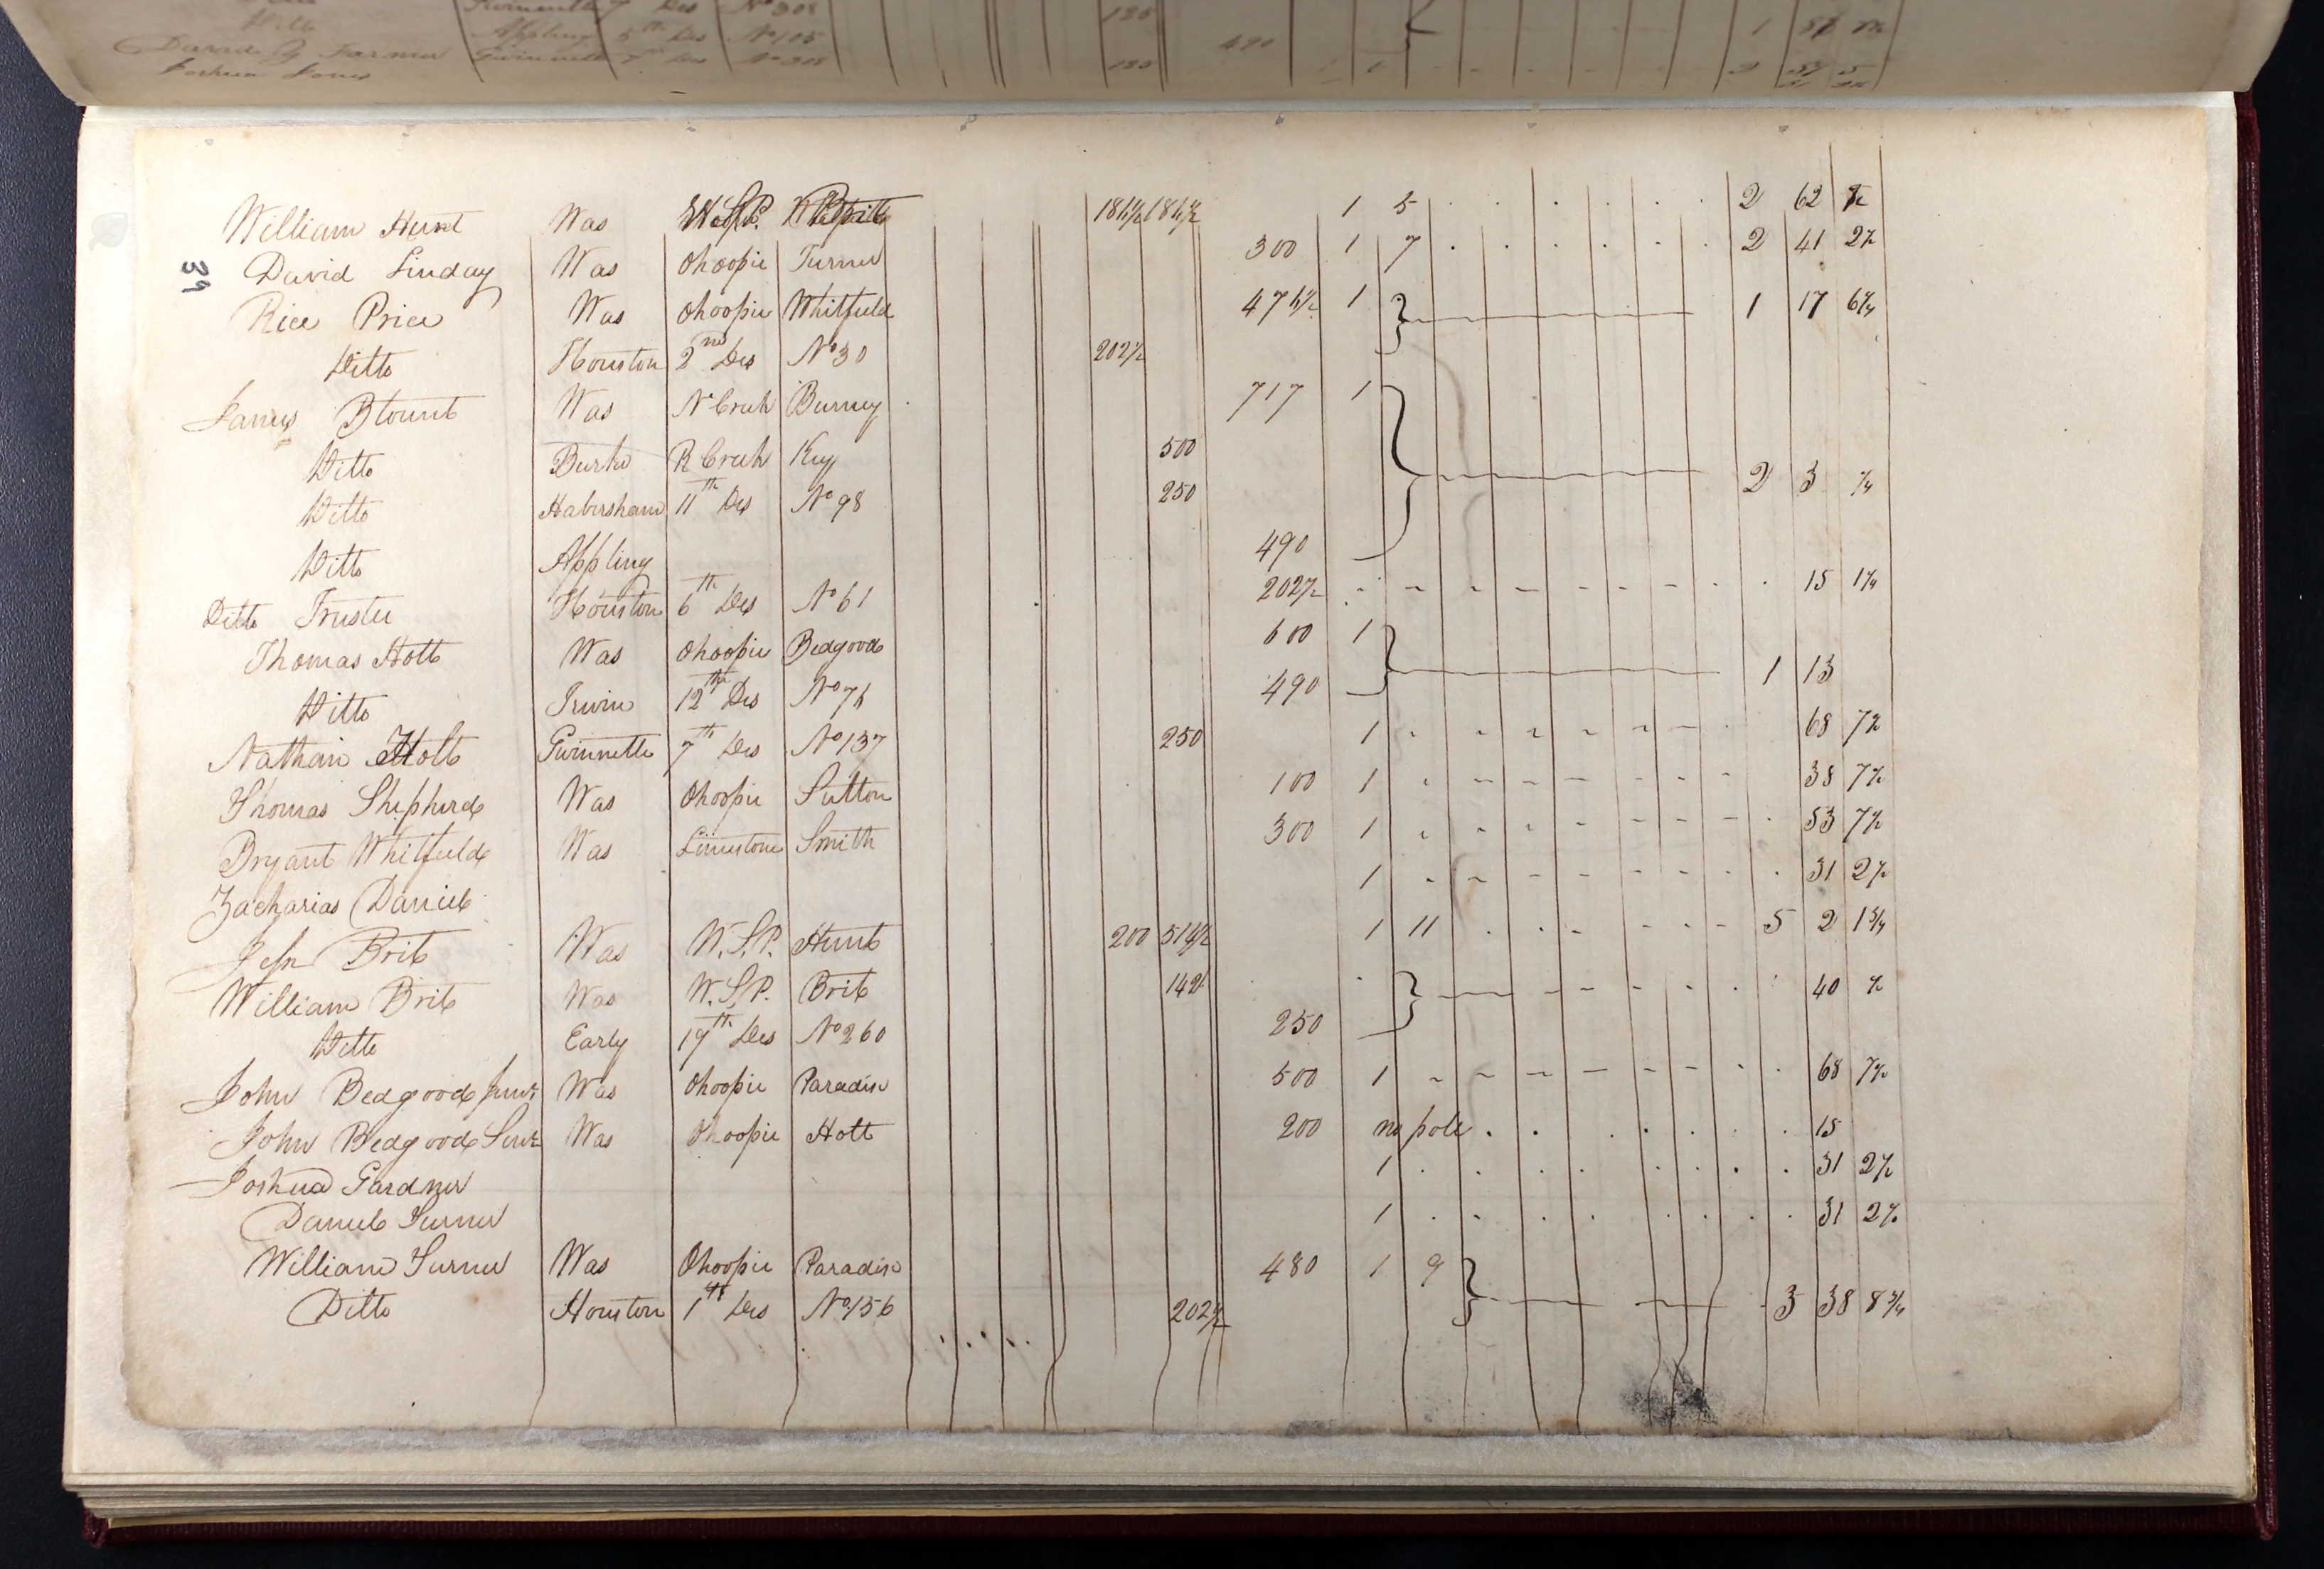 Appling 5th Des No 105
490
William Hunt Was W.S.P. 1 5 2 62
David Linday Was Ohoopie Turner 300 1 7 2 41 2½
39
Rice Price Was Ohoopie Whitfield 1 1 17 6¼
Ditto Houston 2nd Des No 30 202½
James Blount Was N Creek Burney 717 1
Ditto Burke R Creek Key 500
Ditto Habersham 11th Des No 98 250 2 3 ¼
Ditto Appling 490
Ditto Trustee Houston 6th Des No 61 202½ 15 1¼
Thomas Holt Was Ohoopie Bedgood 600 1
Ditto Irwin 12th Des 490 1 13
Nathan Holt Gwinnett 7th Des No 137 250 1 68 7½
Thomas Shepherd Was Ohoopie Sutton 100 1 38 7½
Bryant Whitfield Was Limestone Smith 300 1 53 7½
Zacharias Daniel 1 31 2½
Jesse Brit Was W.S.P. Hunt 200 1 11 5 2 1¾
William Brit Was W.S.P. Brit 142 40 ½
Ditto Early 19th Des No 260 250
John Bedgood Junr Was Ohoopie Paradise 500 1 68 7½
John Bedgood Senr Was Ohoopie Holt 200 no pole 15
Joshua Gardner 1 31 2½
Daniel Turner 1 31 2½
William Turner Was Ohoopie Paradise 480 1 9
Ditto Houston 1st Des No 156 202½ 3 38 8¾